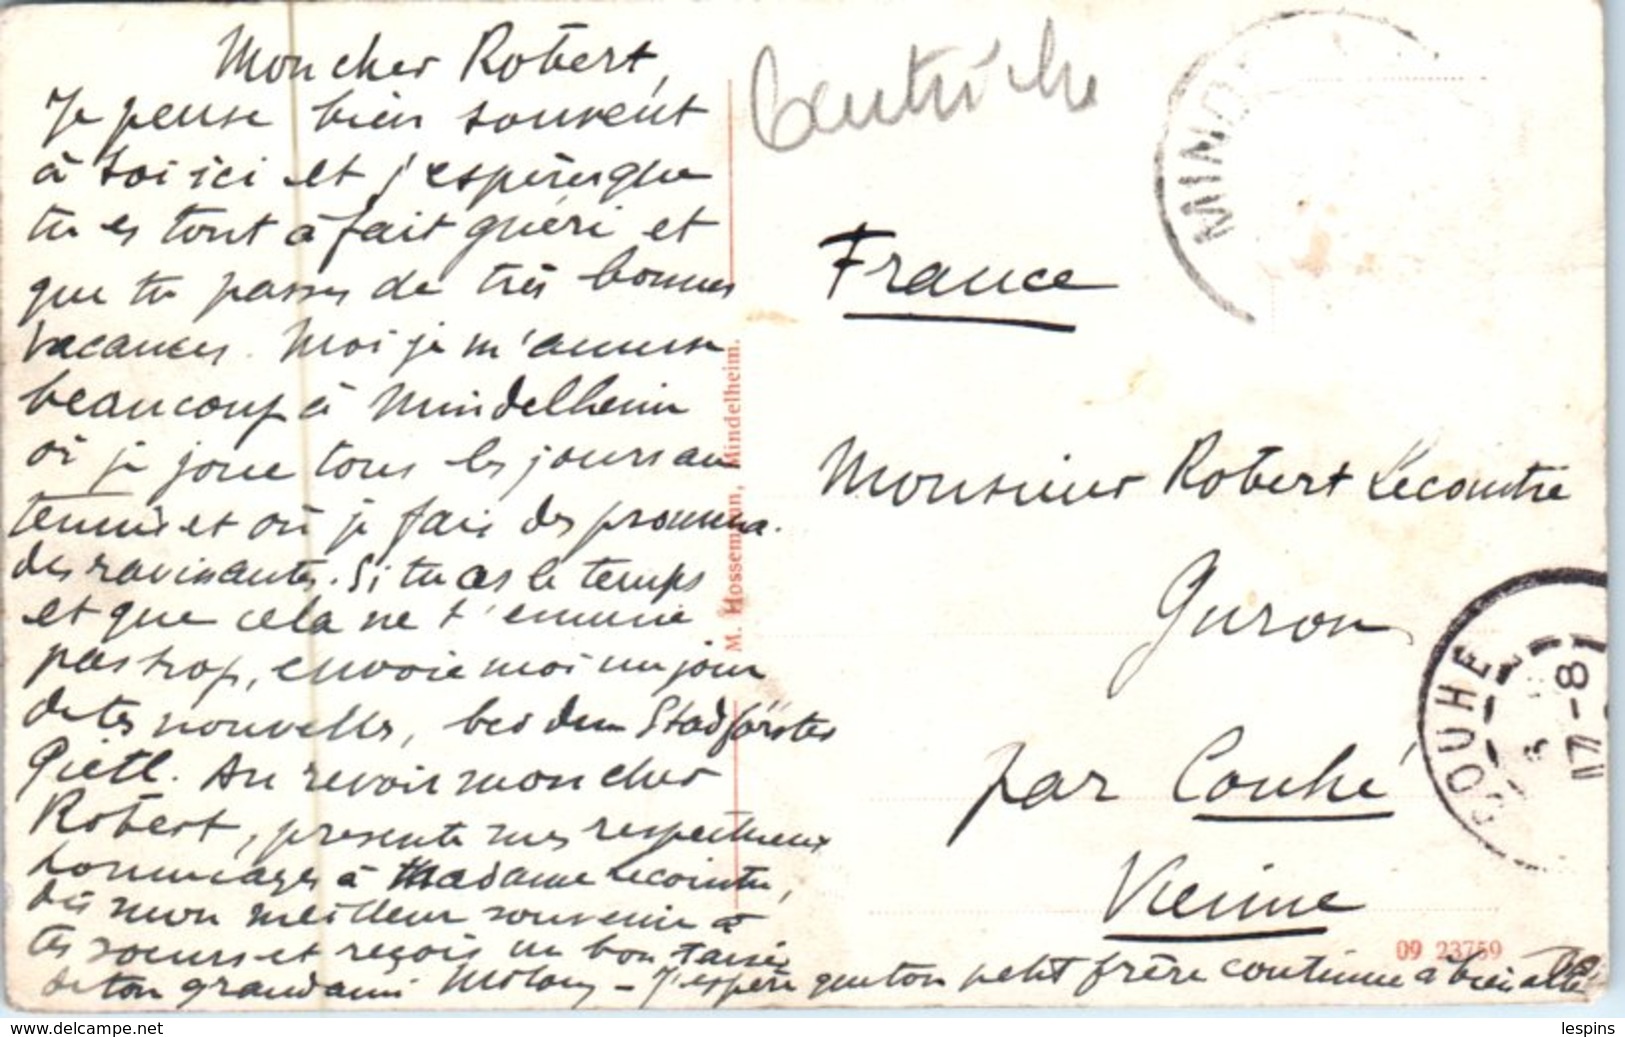 Mon cher Robert,
Je pense bien souvent
à toi ici et j'espère que
tu es tout à fait guéri et
que tu passes de très bonnes
vacances. Moi je m'amuse
beaucoup à Mindelheim
où je joue tous les jours au
tennis et où je fais des promena-
des ravissantes. Si tu as le temps
et que cela ne t'ennuie
pas trop, envoie moi un jour
de tes nouvelles, bei dem Stadförster
Pietl. Au revoir mon cher
Robert, présente mes respectueux
hommages à Madame Lecointre,
dis mon meilleur souvenir à
tes soeurs et reçois un bon baiser
de ton grand ami - J'espère que ton petit frère continue à bien aller
M. Hossemann, Mindelheim.
l'autriche
MIND
France
Monsieur Robert Lecointre
Guron
par Couhé
Vienne
COUHE
17 -8
09 23759
lespins